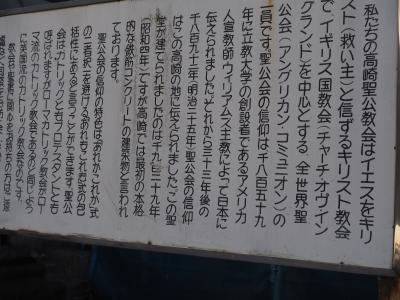 私たちの高崎聖公教会はイエスをキリ
スト(救い主)と信ずるキリスト教会
で、イギリス国教会(チャーチ・オヴ・イン
グランド)を中心とする、全世界聖
公会(アングリカン・コミュニオン)の
一員です。聖公会の信仰は千八百五十九
年に立教大学の創設者であるアメリカ
人宣教師ウィリアムズ主教によって日本に
伝えられました。それから三十三年後の
千八百九十二年(明治二十五年)聖公会の信仰
はこの高崎の地に伝えられました。この聖
堂が建てられましたのは千九百二十九年
(昭和四年)ですが高崎では最初の本格
的な鉄筋コンクリートの建築物と言われ
ております。
聖公会の信仰の特色は「あれかこれか」式
の二者択一を避ける「あれもこれも」式の包
括性にあると言うことができます。聖公
会はカトリックともプロテスタントとも
呼ばれますがローマカトリック教会がロー
マ流のカトリック教会であるのと同じよう
に英国流のカトリック教会なのです。
教会や聖書に関心をお持ちの方は、ご遠